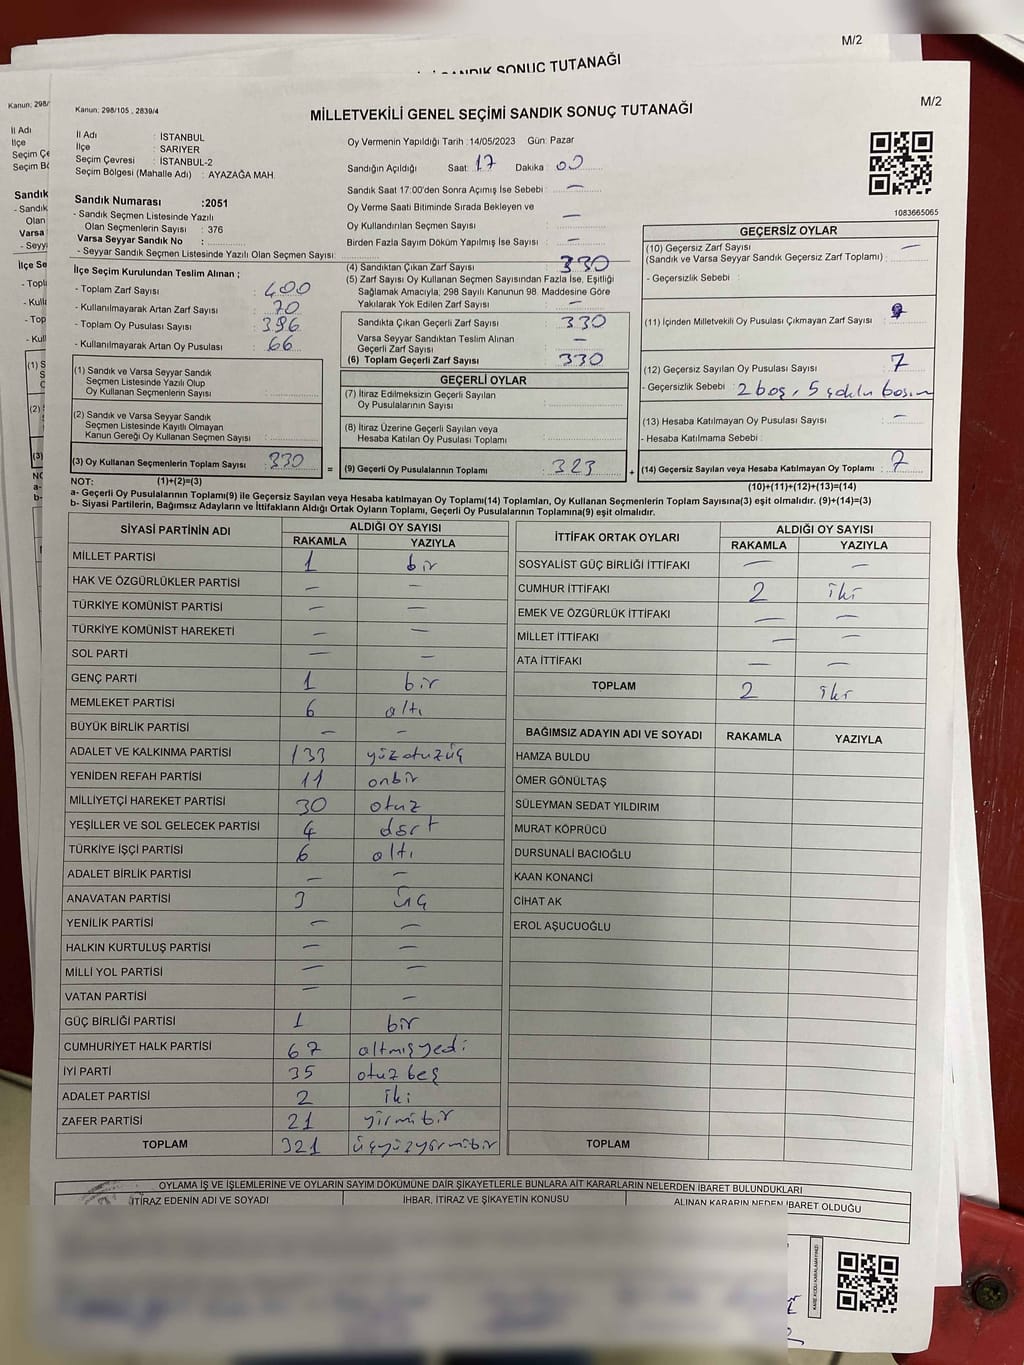 M/2
SANDIK SONUÇ TUTANAĞI
Kanun: 298/
İl Adı
İlçe
Seçim Çe
Seçim Bö
Kanun: 298/105 , 2839/4
MİLLETVEKİLİ GENEL SEÇİMİ SANDIK SONUÇ TUTANAĞI
M/2
İl Adı : İSTANBUL
İlçe : SARIYER
Seçim Çevresi : İSTANBUL-2
Seçim Bölgesi (Mahalle Adı) : AYAZAĞA MAH.
Sandık Numarası :2051
- Sandık Seçmen Listesinde Yazılı
Olan Seçmenlerin Sayısı : 376
Varsa Seyyar Sandık No :
- Seyyar Sandık Seçmen Listesinde Yazılı Olan Seçmen Sayısı:
İlçe Seçim Kurulundan Teslim Alınan ;
- Toplam Zarf Sayısı : 400
- Kullanılmayarak Artan Zarf Sayısı : 70
- Toplam Oy Pusulası Sayısı : 396
- Kullanılmayarak Artan Oy Pusulası : 66
(1) Sandık ve Varsa Seyyar Sandık
Seçmen Listesinde Yazılı Olup
Oy Kullanan Seçmenlerin Sayısı :
(2) Sandık ve Varsa Seyyar Sandık
Seçmen Listesinde Kayıtlı Olmayan
Kanun Gereği Oy Kullanan Seçmen Sayısı :
(3) Oy Kullanan Seçmenlerin Toplam Sayısı : 330
Oy Vermenin Yapıldığı Tarih :14/05/2023 Gün: Pazar
Sandığın Açıldığı Saat: 17 Dakika : 00
Sandık Saat 17:00'den Sonra Açımış İse Sebebi : —
Oy Verme Saati Bitiminde Sırada Bekleyen ve
Oy Kullandırılan Seçmen Sayısı : —
Birden Fazla Sayım Döküm Yapılmış İse Sayısı : —
(4) Sandıktan Çıkan Zarf Sayısı : 330
(5) Zarf Sayısı Oy Kullanan Seçmen Sayısından Fazla İse, Eşitliği
Sağlamak Amacıyla, 298 Sayılı Kanunun 98. Maddesine Göre
Yakılarak Yok Edilen Zarf Sayısı : —
Sandıkta Çıkan Geçerli Zarf Sayısı : 330
Varsa Seyyar Sandıktan Teslim Alınan
Geçerli Zarf Sayısı : —
(6) Toplam Geçerli Zarf Sayısı : 330
GEÇERLİ OYLAR
(7) İtiraz Edilmeksizin Geçerli Sayılan
Oy Pusulalarının Sayısı :
(8) İtiraz Üzerine Geçerli Sayılan veya
Hesaba Katılan Oy Pusulası Toplamı :
= (9) Geçerli Oy Pusulalarının Toplamı : 323
1083665065
GEÇERSİZ OYLAR
(10) Geçersiz Zarf Sayısı —
(Sandık ve Varsa Seyyar Sandık Geçersiz Zarf Toplamı) :
- Geçersizlik Sebebi :
(11) İçinden Milletvekili Oy Pusulası Çıkmayan Zarf Sayısı :
(12) Geçersiz Sayılan Oy Pusulası Sayısı : 7
- Geçersizlik Sebebi : 2 boş, 5 çoklu basım
(13) Hesaba Katılmayan Oy Pusulası Sayısı : —
- Hesaba Katılmama Sebebi :
+ (14) Geçersiz Sayılan veya Hesaba Katılmayan Oy Toplamı : 7
NOT: (1)+(2)=(3) (10)+(11)+(12)+(13)=(14)
a- Geçerli Oy Pusulalarının Toplamı(9) ile Geçersiz Sayılan veya Hesaba katılmayan Oy Toplamı(14) Toplamları, Oy Kullanan Seçmenlerin Toplam Sayısına(3) eşit olmalıdır. (9)+(14)=(3)
b- Siyasi Partilerin, Bağımsız Adayların ve İttifakların Aldığı Ortak Oyların Toplamı, Geçerli Oy Pusulalarının Toplamına(9) eşit olmalıdır.
SİYASİ PARTİNİN ADI ALDIĞI OY SAYISI
RAKAMLA YAZIYLA
MİLLET PARTİSİ 1 bir
HAK VE ÖZGÜRLÜKLER PARTİSİ — —
TÜRKİYE KOMÜNİST PARTİSİ — —
TÜRKİYE KOMÜNİST HAREKETİ — —
SOL PARTİ — —
GENÇ PARTİ 1 bir
MEMLEKET PARTİSİ 6 altı
BÜYÜK BİRLİK PARTİSİ — —
ADALET VE KALKINMA PARTİSİ 133 yüzotuzüç
YENİDEN REFAH PARTİSİ 11 onbir
MİLLİYETÇİ HAREKET PARTİSİ 30 otuz
YEŞİLLER VE SOL GELECEK PARTİSİ 4 dört
TÜRKİYE İŞÇİ PARTİSİ 6 altı
ADALET BİRLİK PARTİSİ — —
ANAVATAN PARTİSİ 3 üç
YENİLİK PARTİSİ — —
HALKIN KURTULUŞ PARTİSİ — —
MİLLİ YOL PARTİSİ — —
VATAN PARTİSİ — —
GÜÇ BİRLİĞİ PARTİSİ 1 bir
CUMHURİYET HALK PARTİSİ 67 altmışyedi
İYİ PARTİ 35 otuzbeş
ADALET PARTİSİ 2 iki
ZAFER PARTİSİ 21 yirmibir
TOPLAM 321 üçyüzyirmibir
İTTİFAK ORTAK OYLARI ALDIĞI OY SAYISI
RAKAMLA YAZIYLA
SOSYALİST GÜÇ BİRLİĞİ İTTİFAKI — —
CUMHUR İTTİFAKI 2 iki
EMEK VE ÖZGÜRLÜK İTTİFAKI — —
MİLLET İTTİFAKI — —
ATA İTTİFAKI — —
TOPLAM 2 iki
BAĞIMSIZ ADAYIN ADI VE SOYADI RAKAMLA YAZIYLA
HAMZA BULDU
ÖMER GÖNÜLTAŞ
SÜLEYMAN SEDAT YILDIRIM
MURAT KÖPRÜCÜ
DURSUNALİ BACIOĞLU
KAAN KONANCİ
CİHAT AK
EROL AŞUCUOĞLU
TOPLAM
OYLAMA İŞ VE İŞLEMLERİNE VE OYLARIN SAYIM DÖKÜMÜNE DAİR ŞİKAYETLERLE BUNLARA AİT KARARLARIN NELERDEN İBARET BULUNDUKLARI
İTİRAZ EDENİN ADI VE SOYADI İHBAR, İTİRAZ VE ŞİKAYETİN KONUSU ALINAN KARARIN NEDEN İBARET OLDUĞU